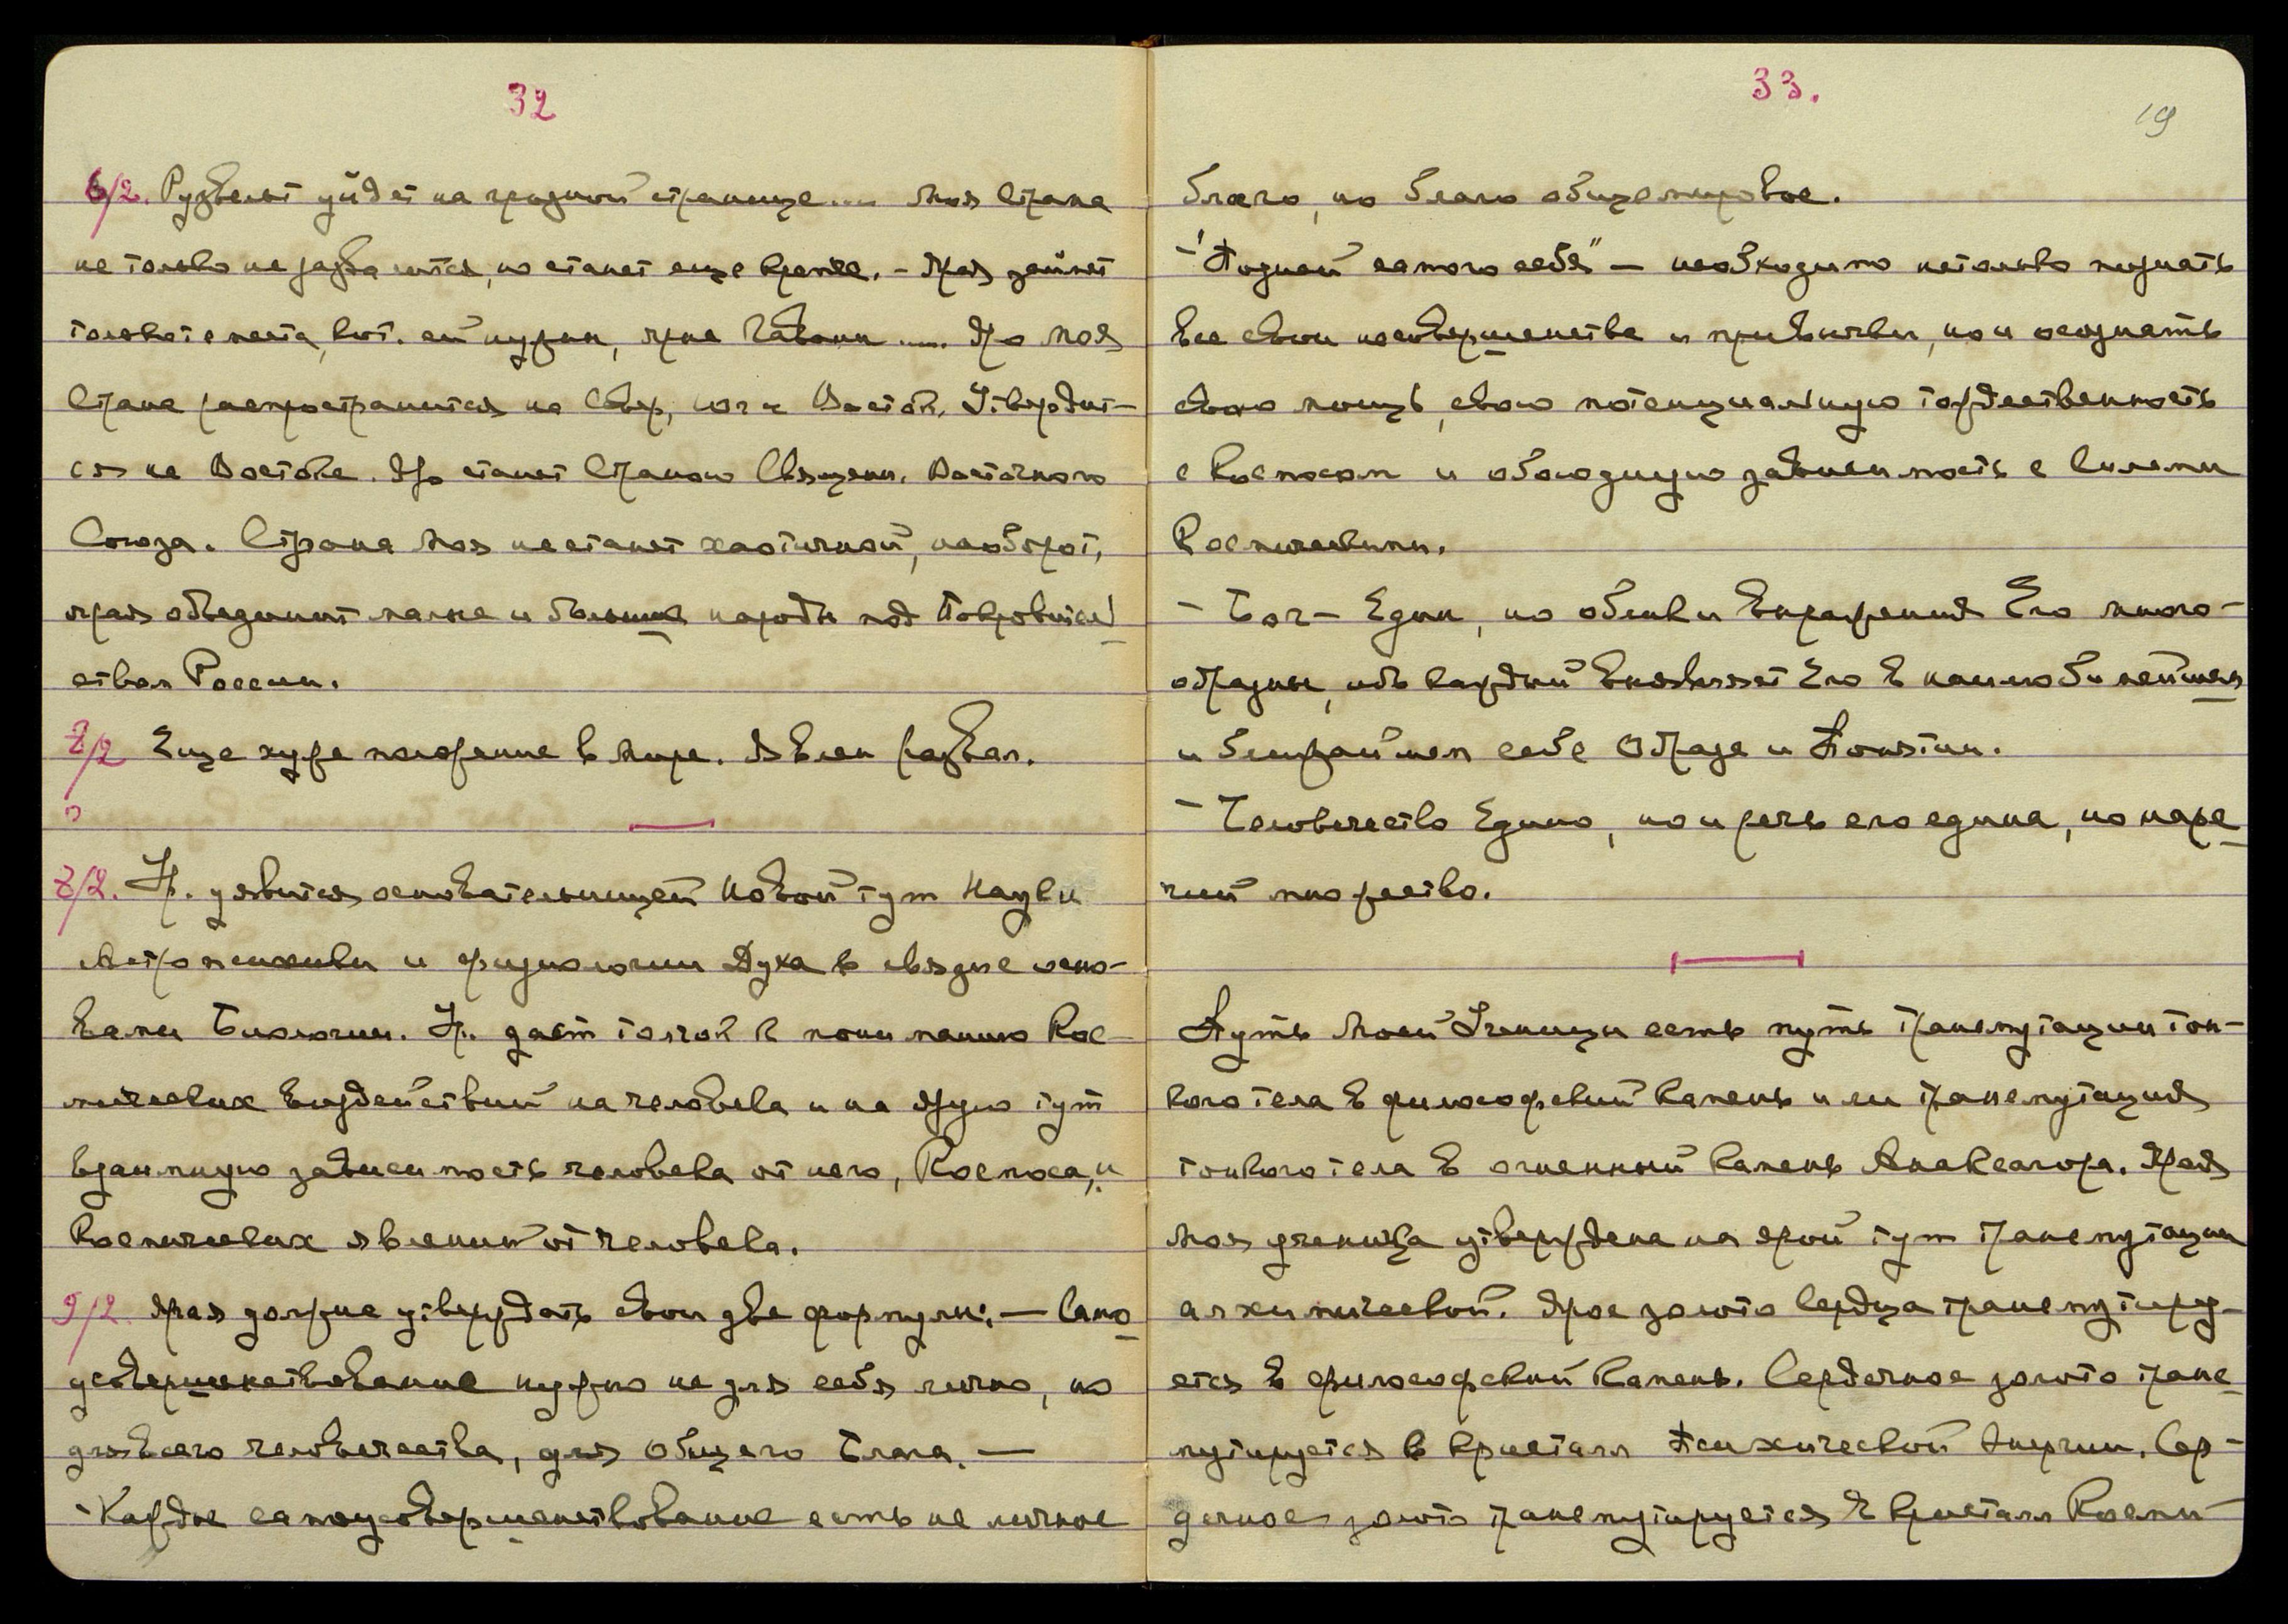 32
6/2. Рузвельт уйдет на грозной странице.... Моя Страна
не только не развалится, но станет еще крепче. – Ярая займет
только те места, кот. ей нужны, яро .... Яро Моя
Страна распространится на Север, Юг и Восток. Утвердит-
ся на Востоке. Яро станет Страною Священн. Восточного
Союза. Страна Моя не станет хаотичной, наоборот,
ярая объединит малые и большие народы под Покровитель
ством России.
7/2 Еще хуже положение в Мире. Явлен развал.
7/2. Ур. уявится основательницей Новой тут Науки
Астрохимии и физиологии Духа в связи с осно-
вами Биологии. Ур. даст толчок к пониманию Кос-
мических воздействий на человека и на ярую тут
взаимную зависимость человека от него, Космоса, и
Космических явлений от человека.
9/2. Ярая должна утверждать свои две формулы: — Само
усовершенствование нужно не для себя лично, но
для всего человечества, для Общего Блага. —
– Каждое самоусовершенствование есть не личное
33.
19
благо, но благо общемировое.
– "Познай самого себя" — необходимо не только познать
все свои несовершенства и привычки, но и осознать
свою мощь, свою потенциальную тождественность
с Космосом и обоюдную зависимость с Силами
Космическими.
– Бог – Един, но облики выражения Его много-
образны, ибо каждый выявляет Его в наилюбимейшем
и ближайшем себе Образе и Понятии.
– Человечество Едино, но и речь его едина, но наре
чий множество.
Путь Моей Ученицы есть путь трансмутации тон-
кого тела в философский камень или трансмутация
тонкого тела в огненный камень Анаксагора. Ярая
Моя ученица утверждена на ярой тут трансмутации
алхимической. Ярое золото Сердца трансмутиру-
ется в философский камень. Сердечное золото транс
мутируется в кристалл Психической Энергии. Сер-
дечное золото трансмутируется в кристалл Косми